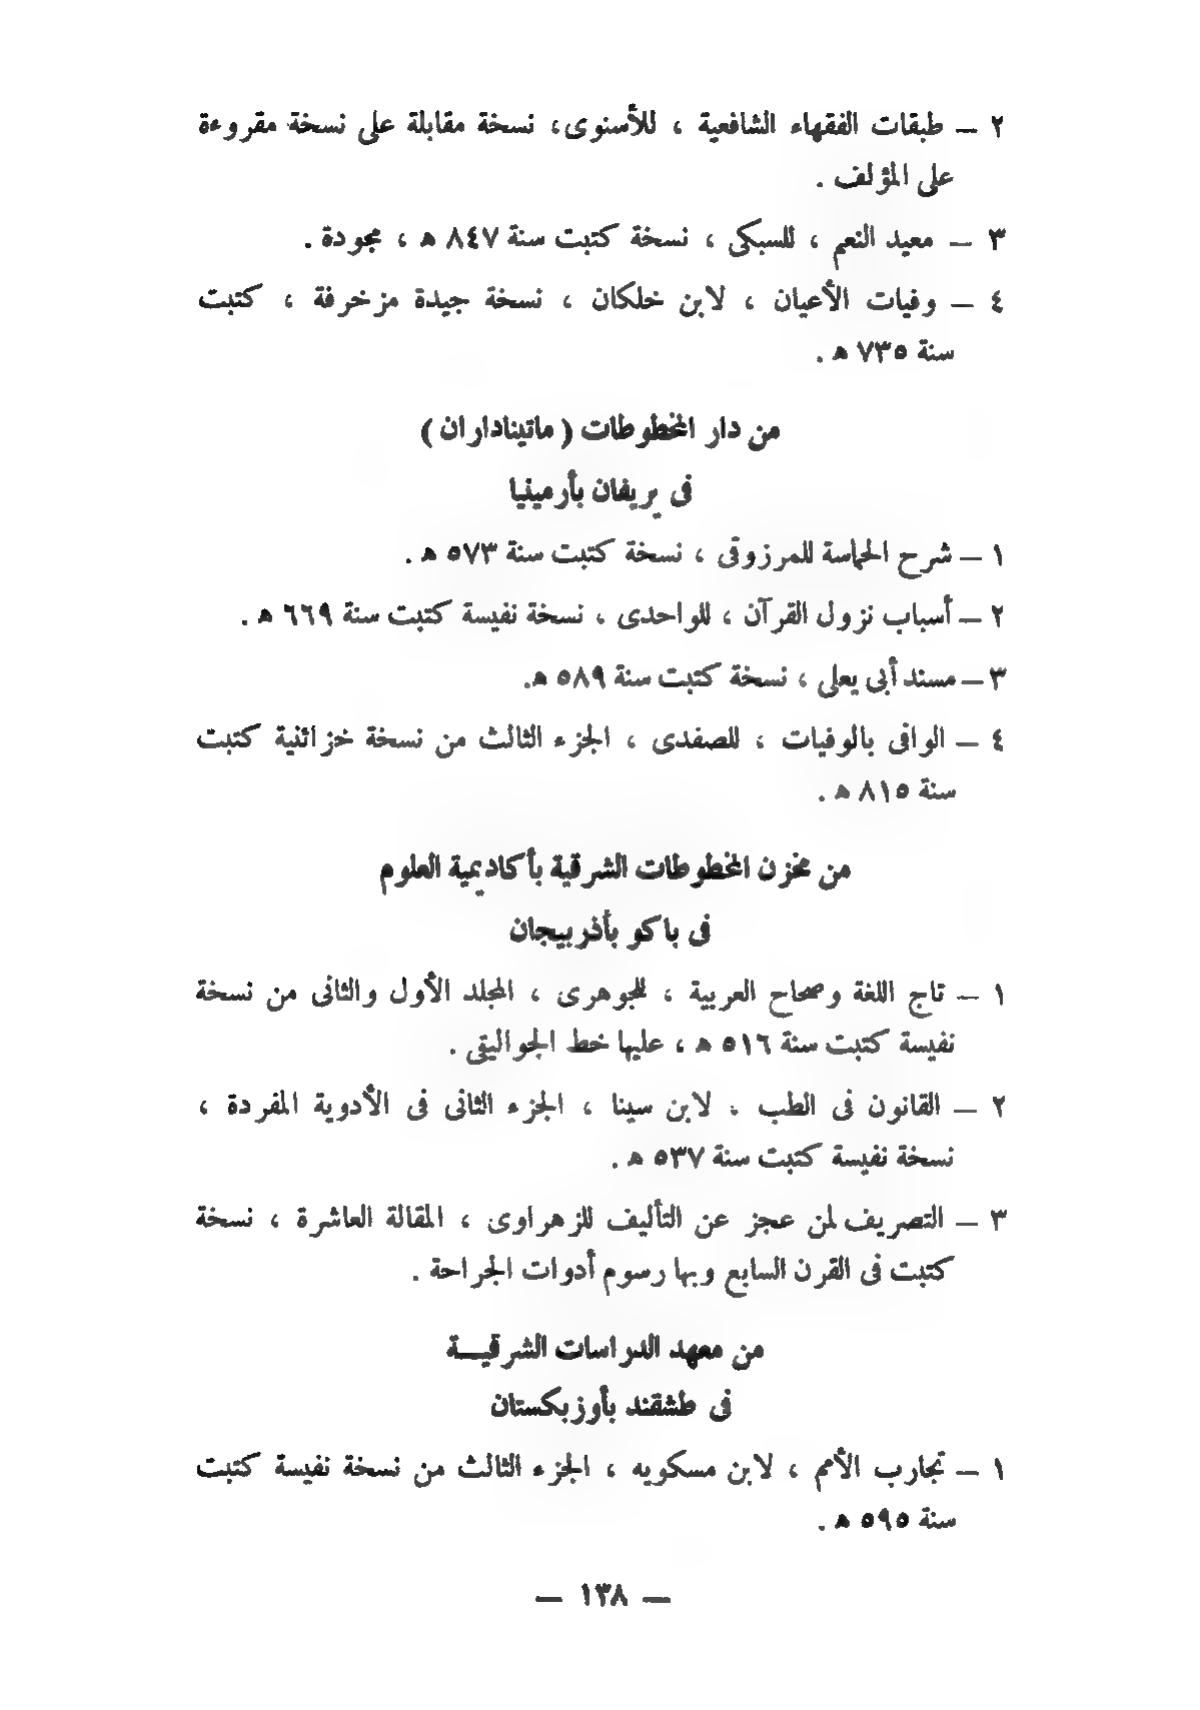 ٢ – طبقات الفقهاء الشافعية ، للأسنوى، نسخة مقابلة على نسخة مقروءة
على المؤلف .
٣ – معيد النعم ، للسبكى ، نسخة كتبت سنة ٨٤٧ ه ، مجودة .
٤ – وفيات الأعيان ، لابن خلكان ، نسخة جيدة مزخرفة ، كتبت
سنة ٧٣٥ ه .
من دار المخطوطات ( ماتيناداران )
فى يريفان بأرمينيا
١ – شرح الحماسة للمرزوقى ، نسخة كتبت سنة ٥٧٣ ه .
٢ – أسباب نزول القرآن ، للواحدى ، نسخة نفيسة كتبت سنة ٦٦٩ ه .
٣ – مسند أبى يعلى ، نسخة كتبت سنة ٥٨٩ ه.
٤ – الوافى بالوفيات ، للصفدى ، الجزء الثالث من نسخة خزائنية كتبت
سنة ٨١٥ ه .
من مخزن المخطوطات الشرقية بأكاديمية العلوم
فى باكو بأذربيجان
١ – تاج اللغة وصحاح العربية ، للجوهرى ، المجلد الأول والثانى من نسخة
نفيسة كتبت سنة ٥١٦ ه ، عليها خط الجواليقى .
٢ – القانون فى الطب ، لابن سينا ، الجزء الثانى فى الأدوية المفردة ،
نسخة نفيسة كتبت سنة ٥٣٧ ه .
٣ – التصريف لمن عجز عن التأليف للزهراوى ، المقالة العاشرة ، نسخة
كتبت فى القرن السابع وبها رسوم أدوات الجراحة .
من معهد الدراسات الشرقيـــة
فى طشقند بأوزبكستان
١ – تجارب الأمم ، لابن مسكويه ، الجزء الثالث من نسخة نفيسة كتبت
سنة ٥٩٥ ه .
– ١٣٨ –